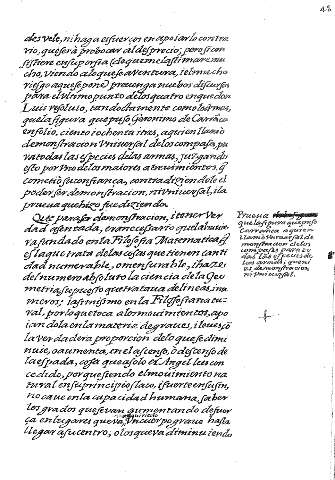 desvele, ni haga esfuerços en apoiar lo contra
rio, que será probocar al desprecio; pero si con
sistiere en su porfia (de que me lastimaré mu
cho, viendo a lo que se aventura, i el mucho
riesgo a que se pone) prevenga nuebos discursos
para el ultimo punto de los quatro en que don
Luis resoluió, tan doctamente como habemos,
que la figura que puso Geronimo de Carrança
en folio, ciento i ochenta i tres, a quien llamó
demonstracion Vniversal de los compases, pa
ra todas las especies de las armas, juzgando
esto por vno de los maiores atreuimientos, q̃
cometió su confiança, contradiziendole el
poder ser demonstracion, ni Vniversal, i la
prueua que hizo fue diziendo.
Que para ser demonstracion, i tener Ver
dad asentada, era necessario que estuuie
ra fundado en la Filosofia Matematica q̃
es la que trata de las cosas que tienen canti
dad numerable, o mensurable, i haze
del numero absoluto la ciencia de la Geo
metria, respecto que trata va de lineas, i nu
meros; i así mismo en la Filosofia natu
ral, por lo que toca a los mouimientos, apo
iandola en la materia de graues, i leues, cõ
la verdadera proporcion de lo que se dimi
nuie, o aumenta, en el ascenso, o descenso de
la espada, cosa que a solo el Angel le es con
cedido, porque siendo el mouimiento na
tural en su principio flaco, i fuerte en su fin,
no cae en la capacidad humana, saber
los grados que se van aumentando de fuer
ça en lugares que va vn cuerpo graue hasta
llegar a su centro, o los que va diminuiendo
Prueua
que la figura que puso
Carrança a quien
llamó Vniversal de
monstracion de los
compases para to
das las especies de
las armas, que no
es demonstracion
ni Vniversal.